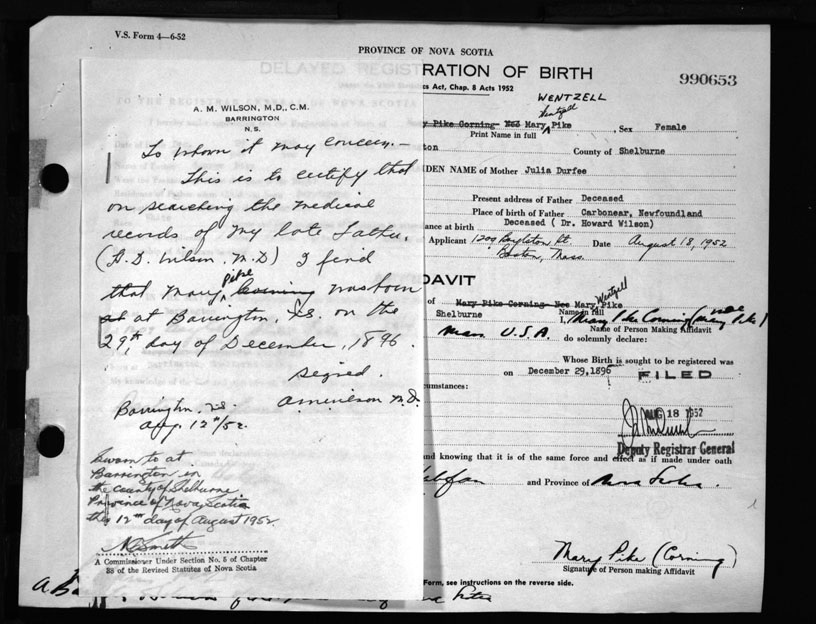 V.S. Form 4—6-52
PROVINCE OF NOVA SCOTIA
DELAYED REGISTRATION OF BIRTH
990653
Act, Chap. 8 Acts 1952
A. M. WILSON, M.D., C.M.
BARRINGTON
N.S.
To whom it may concern.—
This is to certify that
on searching the medical
records of my late father,
(H.D. Wilson M.D) I find
that Mary Pike Corning was born
at Barrington, N.S. on the
29th day of December, 1896
signed.
A.M. Wilson M.D.
Barrington, N.S.
Aug. 12th/52.
Sworn to at
Barrington in
the county of Shelburne
Province of Nova Scotia
this 12th day of August 1952
A Commissioner Under Section No. 5 of Chapter
38 of the Revised Statutes of Nova Scotia
WENTZELL
Wentzell
Pike Corning Nee Mary Pike, Sex Female
Print Name in full
ton County of Shelburne
DEN NAME of Mother Julia Durfee
Present address of Father Deceased
Place of birth of Father Carbonear, Newfoundland
ance at birth Deceased ( Dr. Howard Wilson)
Applicant 1209 Boylston St. Date August 18, 1952
Boston, Mass.
DAVIT
Wentzell
of Mary Pike Corning Nee Mary Pike
Name in full
Shelburne I, Mary Pike Corning (nee Mary Pike)
Name of Person Making Affidavit
Mass. U.S.A. do solemnly declare:
Whose Birth is sought to be registered was
on December 29, 1896
FILED
cumstances:
AUG 18 1952
Deputy Registrar General
and knowing that it is of the same force and effect as if made under oath
Halifax and Province of Nova Scotia.
Mary Pike (Corning)
Signature of Person making Affidavit
Form, see instructions on the reverse side.